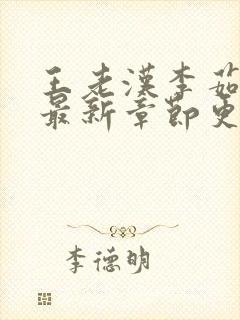 王老汉李茹
最新章节更
李德明